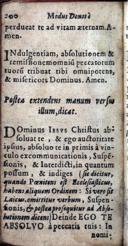 200 Modus Denuò
perducat te ad vitam æternam. A-
men.
INdulgentiam, absolutionem &
remissionem omniũ peccatorum
tuorũ tribuat tibi omnipotens,
& misericors Dominus. Amen.
Postea extendens manum versus
illum, dicat.
DOminus Iesvs Christus ab-
soluat te, & ego auctoritate
ipsius, absoluo te in primis à vin-
culo excommunicationis, Suspẽ-
sionis, & Interdicti, in quantum
possum, & indiges (se dicitur,
quando Pœnitens est Ecclesiasticus,
habens aliquem Ordinem: Si vero sit
Laicus, omittitur verbum, Suspen-
sionis, & postea prosequitur ad Abso-
lutionem dicens) Deinde EGO TE
ABSOLVO à peccatis tuis: In
nomi-